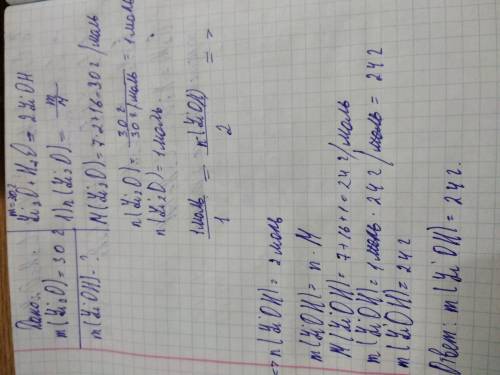 Дано:
m(Li₂O)=30 г
m(LiOH)-?
m=30г
Li₂O+H₂O=2LiOH
1) n(Li₂O)= m/M
M(Li₂O)=7·2+16=30 г/моль
n(Li₂O)= 30 г / 30 г/моль = 1 моль
n(Li₂O)=1 моль
1 моль / 1 = n(LiOH) / 2 =>
=> n(LiOH)= 2 моль
m(LiOH)= n·M
M(LiOH)=7+16+1=24 г/моль
m(LiOH)=1 моль·24 г/моль= 24 г
m(LiOH)=24 г
Ответ: m(LiOH)=24 г.